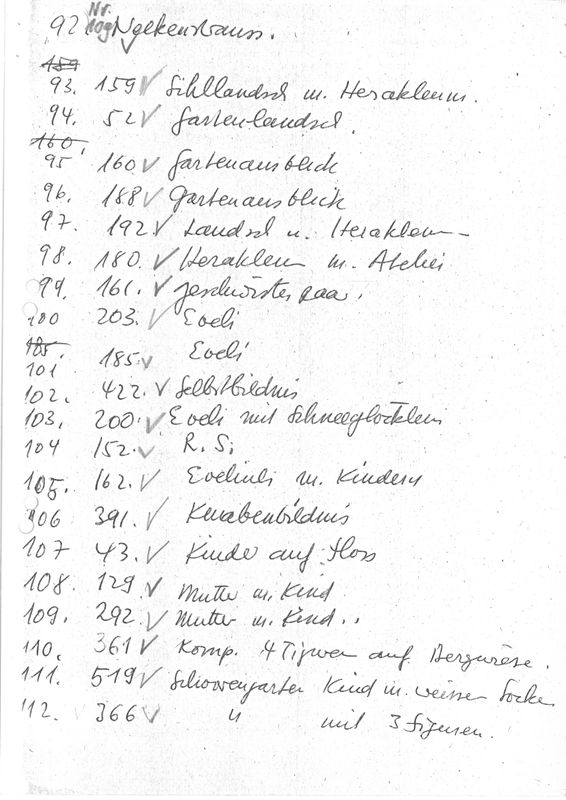 92 Nr. 109 Nelkenstrauss.
159
93. 159 ✓ Sihllandsch m. Herakleum.
94. 52 ✓ Gartenlandsch.
160.
95 160 ✓ Gartenausblick
96. 188 ✓ Gartenausblick
97. 192 ✓ Landsch m. Herakleum
98. 180. ✓ Herakleum m. Atelier
99. 161. ✓ Geschwisterpaar.
100 203. ✓ Eveli
105.
101 185 ✓ Eveli
102. 422. ✓ Selbstbildnis
103. 200. ✓ Eveli mit Schneeglöcklein
104 152. ✓ R. S.
105. 162. ✓ Eveline m. Kindern
106 391. ✓ Knabenbildnis
107 43. ✓ Kinder auf Floss
108. 129 ✓ Mutter m. Kind
109. 292 ✓ Mutter m. Kind..
110. 361 ✓ Komp. 4 Figuren auf Bergwiese.
111. 519 ✓ Kind m. weissen Socken
112. 366 ✓ " mit 3 Figuren.